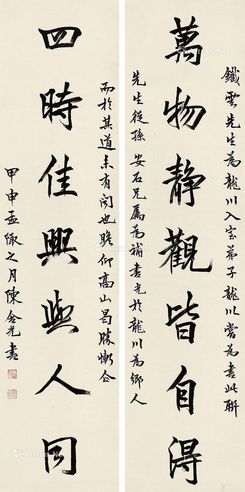 萬物静觀皆自得
鐵雲先生為龍川入室弟子龍川嘗為書此聯
先生從孫安石兄屬為補書光於龍川為鄉人
四時佳興與人同
而於其道未有聞也瞻仰高山曷勝慚仄
甲申孟陬之月陳含光書